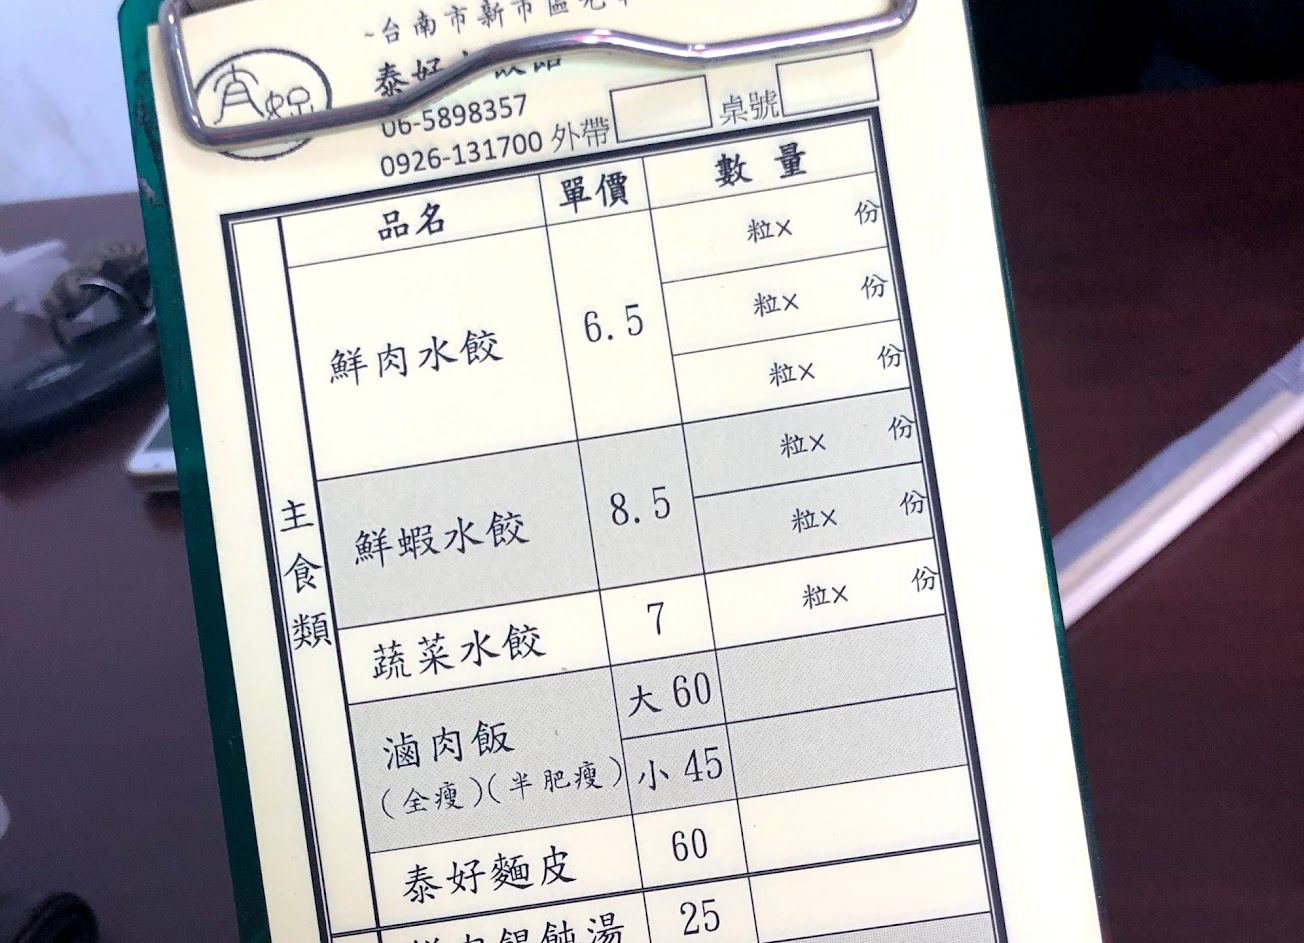 ~台南市新市區
泰好
06-5898357
0926-131700 外帶 桌號
品名 單價 數量
主食類
鮮肉水餃 6.5
粒× 份
粒× 份
粒× 份
鮮蝦水餃 8.5
粒× 份
粒× 份
蔬菜水餃 7 粒× 份
滷肉飯 大 60
(全瘦)(半肥瘦) 小 45
泰好麵皮 60
鮮肉餛飩湯 25